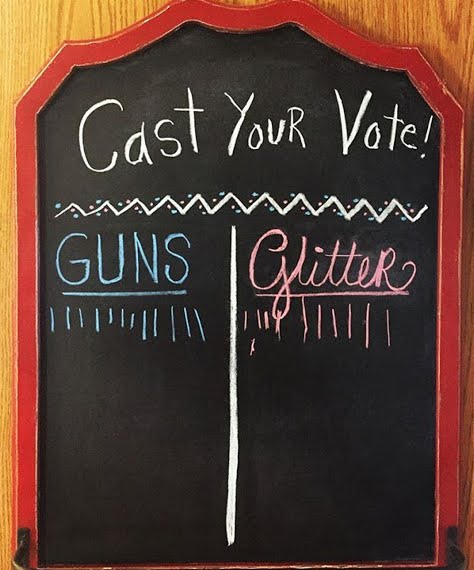 Cast Your Vote!
GUNS
Glitter